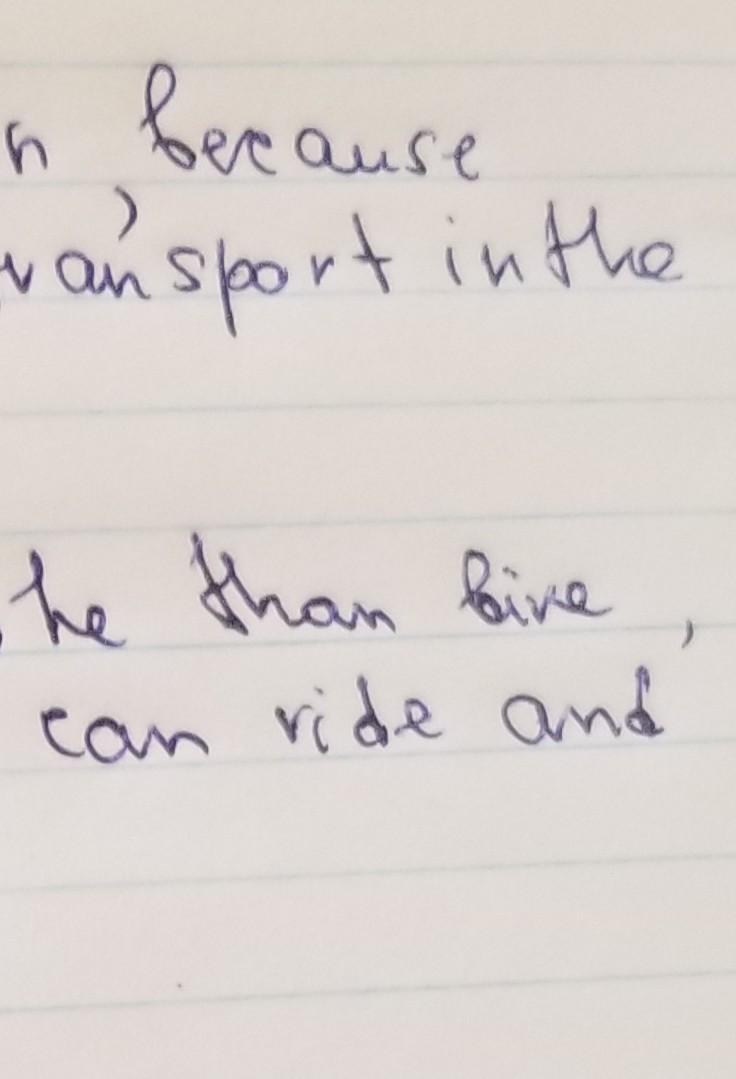 n because
ransport in the
he than bike,
can ride and